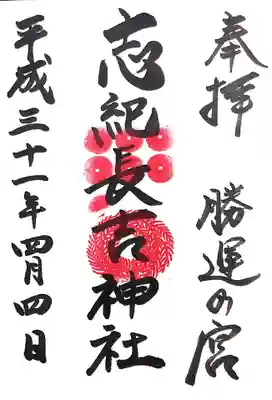 奉拝 勝運の宮
志紀長吉神社
平成三十一年四月四日